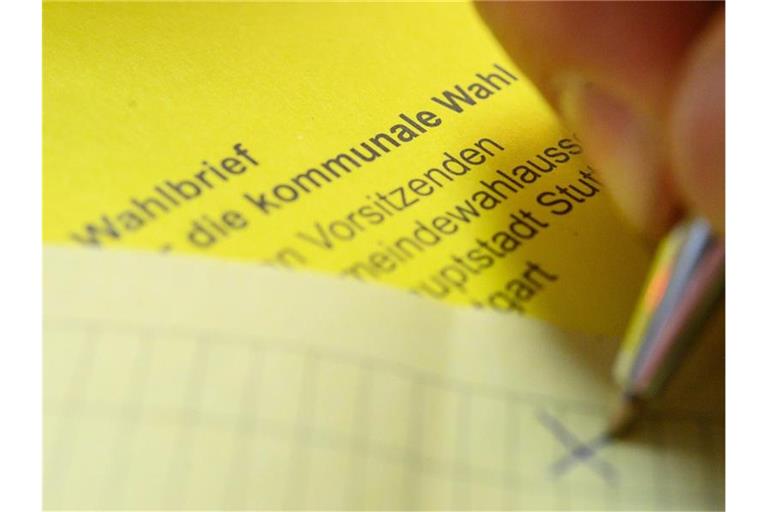 Wahlbrief
die kommunale Wahl
Vorsitzenden
meindewahlauss
uptstadt Stutt
gart